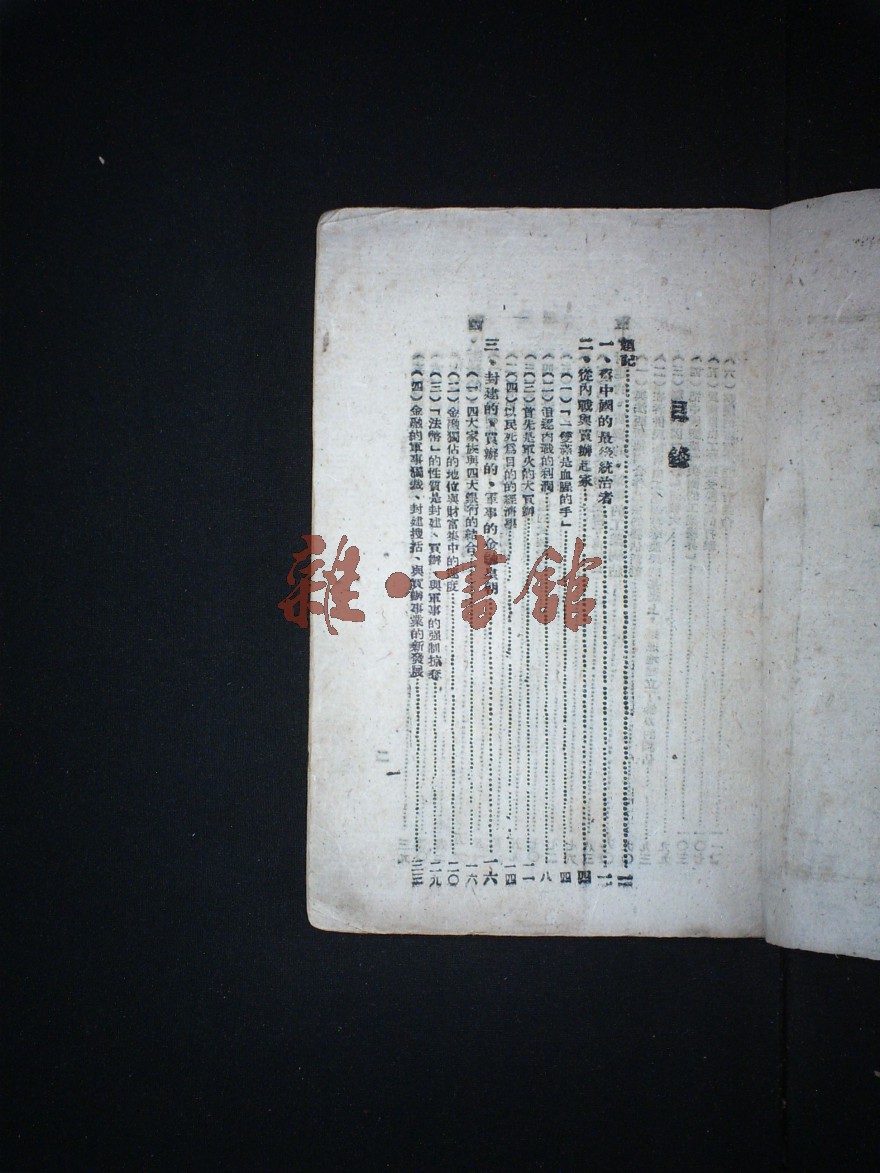 目錄
題記 一
一、舊中國的最後統治者 二
二、從內戰與買辦起家 四
(一)「一雙滿是血腥的手」 四
(二)追逐內戰的利潤 八
(三)首先是軍火的大買辦 一一
(四)以民死為目的的經濟學 一四
三、封建的、買辦的、軍事的金融 一六
(一)四大家族與四大銀行的結合 一六
(二)金融獨佔的地位與財富集中的速度 二〇
(三)「法幣」的性質是封建、買辦、與軍事的强制掠奪 二九
(四)金融的軍事獨裁、封建搜括、與買辦事業的新發展 三三
一
雜·書館